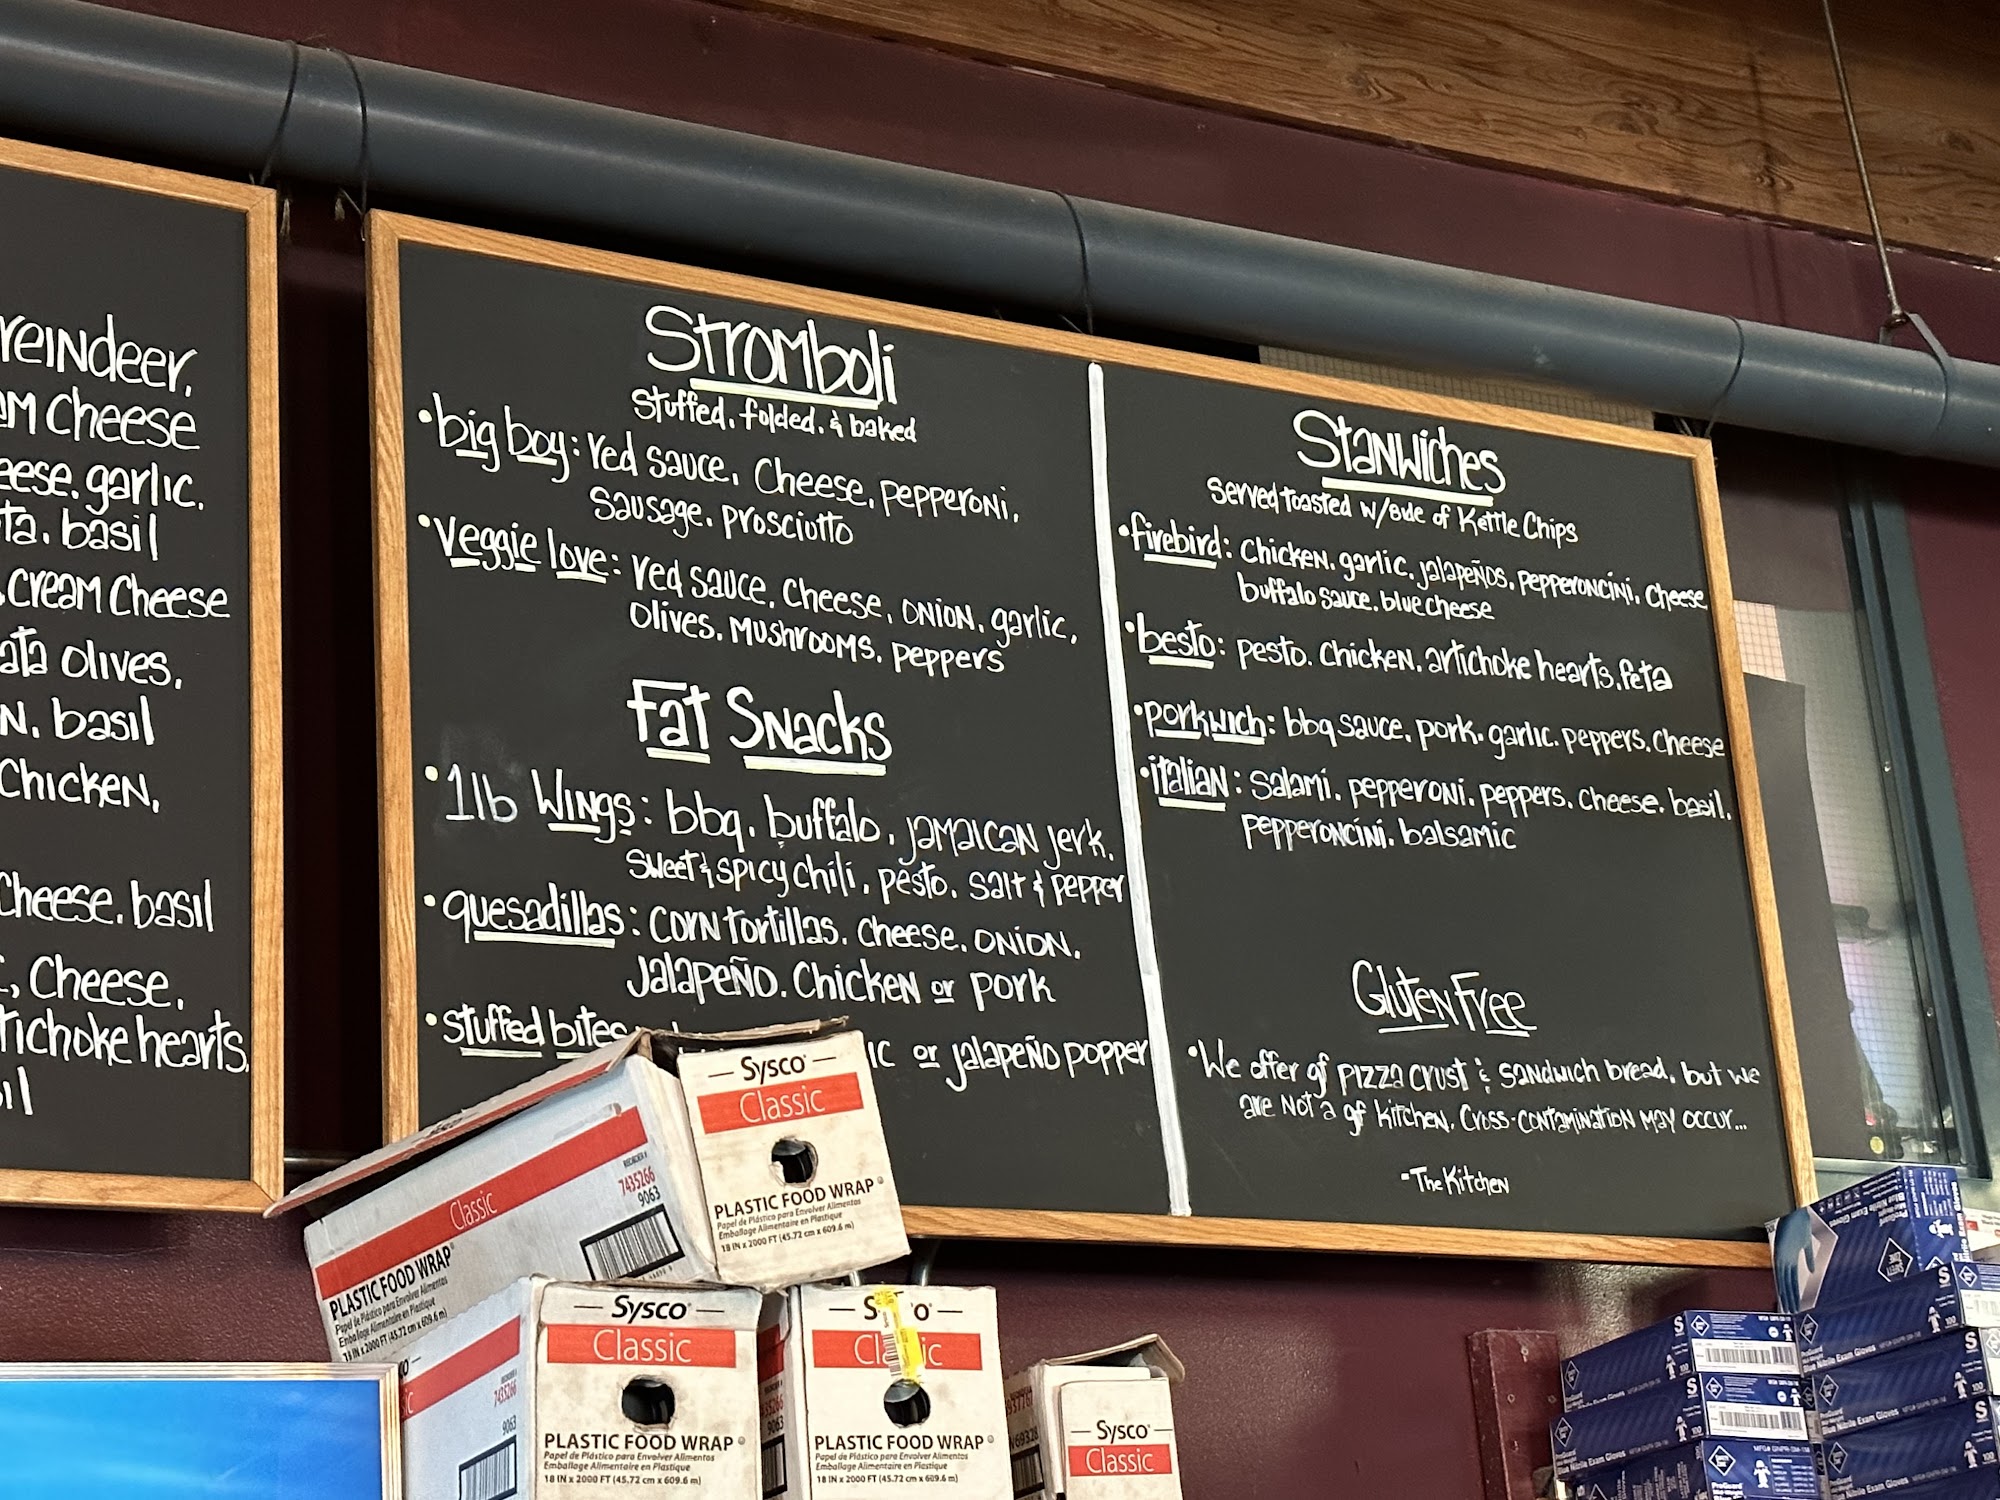 reindeer,
cheese
garlic.
basil
cream cheese
olives,
basil
chicken,
cheese. basil
cheese,
artichoke hearts.
Stromboli
stuffed. folded. & baked
• big boy: red sauce. cheese. pepperoni.
sausage. prosciutto
• veggie love: red sauce. cheese. onion. garlic.
olives. mushrooms. peppers
Fat Snacks
• 1lb Wings: bbq. buffalo. jamaican jerk.
sweet & spicy chili. pesto. salt & pepper
• quesadillas: corn tortillas. cheese. onion.
jalapeño. chicken or pork
• stuffed bites
or jalapeño popper
Stanwiches
served toasted w/side of Kettle Chips
• firebird: chicken. garlic. jalapeños. pepperoncini. cheese
buffalo sauce. blue cheese
• besto: pesto. chicken. artichoke hearts. feta
• porkwich: bbq sauce. pork. garlic. peppers. cheese
• italian: salami. pepperoni. peppers. cheese. basil.
pepperoncini. balsamic
Gluten Free
• We offer gf pizza crust & sandwich bread, but we
are not a gf kitchen. Cross-contamination may occur...
- The Kitchen
Sysco
Classic
PLASTIC FOOD WRAP
Papel de Plástico para Envolver Alimentos
Emballage Alimentaire en Plastique
18 IN x 2000 FT (45.72 cm x 609.6 m)
Classic
7435266
9063
PLASTIC FOOD WRAP
Papel de Plástico para Envolver Alimentos
Emballage Alimentaire en Plastique
18 IN x 2000 FT (45.72 cm x 609.6 m)
7435266
9063
Sysco
Classic
PLASTIC FOOD WRAP
Papel de Plástico para Envolver Alimentos
Emballage Alimentaire en Plastique
18 IN x 2000 FT (45.72 cm x 609.6 m)
9063
PLASTIC FOOD WRAP
Papel de Plástico para Envolver Alimentos
Emballage Alimentaire en Plastique
18 IN x 2000 FT (45.72 cm x 609.6 m)
Sysco
Classic
ProGuard
Blue Nitrile Exam Gloves
S
100
Blue Nitrile Exam Gloves
S
100